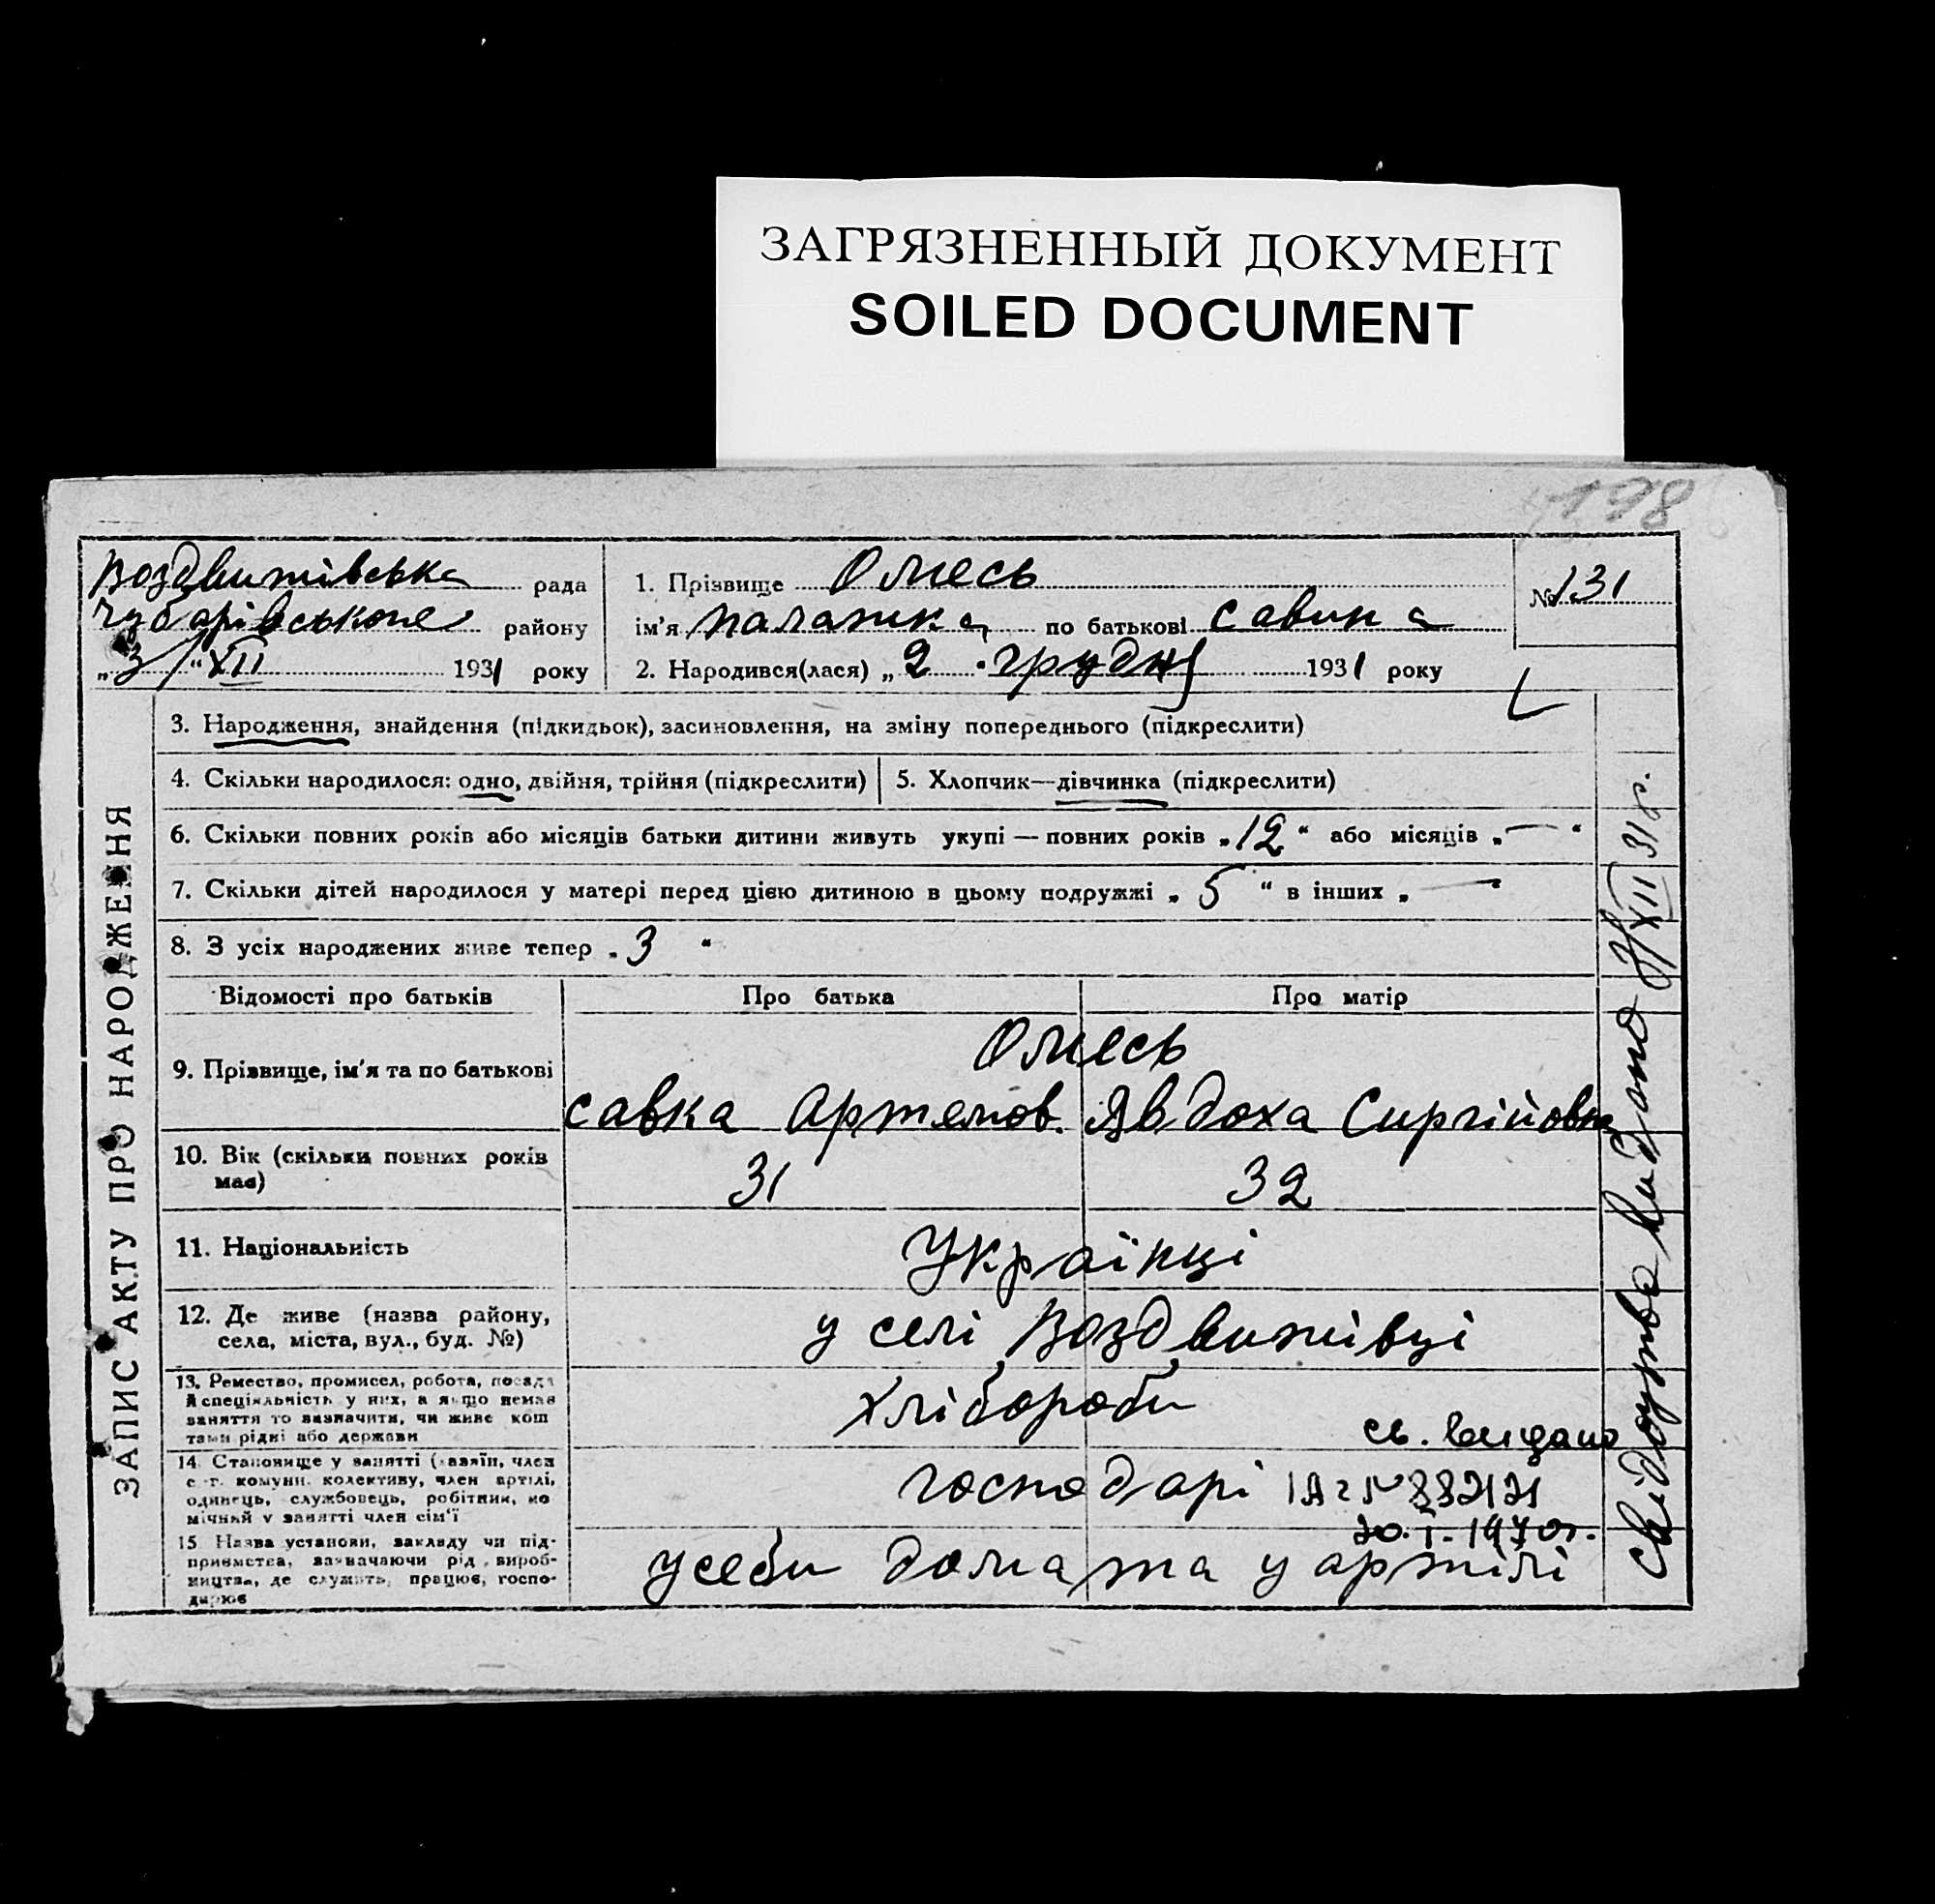 ЗАГРЯЗНЕННЫЙ ДОКУМЕНТ
SOILED DOCUMENT
198
Воздвижівська рада
Чубарівського району
„3/“ XII 1931 року
1. Прізвище Олесь
ім'я Палажка по батькові Савина
2. Народився(лася) „2“ грудня 1931 року
№ 131
ЗАПИС АКТУ ПРО НАРОДЖЕННЯ
3. Народження, знайдення (підкидьок), засиновлення, на зміну попереднього (підкреслити)
4. Скільки народилося: одно, двійня, трійня (підкреслити)
5. Хлопчик—дівчинка (підкреслити)
6. Скільки повних років або місяців батьки дитини живуть укупі — повних років „12“ або місяців „—“
7. Скільки дітей народилося у матері перед цією дитиною в цьому подружжі „5“ в інших „—“
8. З усіх народжених живе тепер „3“
Відомості про батьків
Про батька
Про матір
9. Прізвище, ім'я та по батькові
Олесь
Савка Артемов. Явдоха Сиргійовна
10. Вік (скільки повних років
має)
31
32
11. Національність
Українці
12. Де живе (назва району,
села, міста, вул., буд. №)
у селі Воздвижівці
13. Ремество, промисел, робота, посада
й спеціяльність у них, а якщо немає
заняття то зазначити, чи живе кош
тами рідні або держави
Хлібороби
св. видано
14. Становище у занятті (хазяїн, член
с.-г. комуни, колективу, член артілі,
одинець, службовець, робітник, по
мічний у занятті член сім'ї
господарі
15. Назва установи, закладу чи під-
приємства, зазначаючи рід вироб-
ництва, де служить, працює, госпо-
дарює
усеби дома та у артілі
Свідоцтво видано 3/XII 31 р.